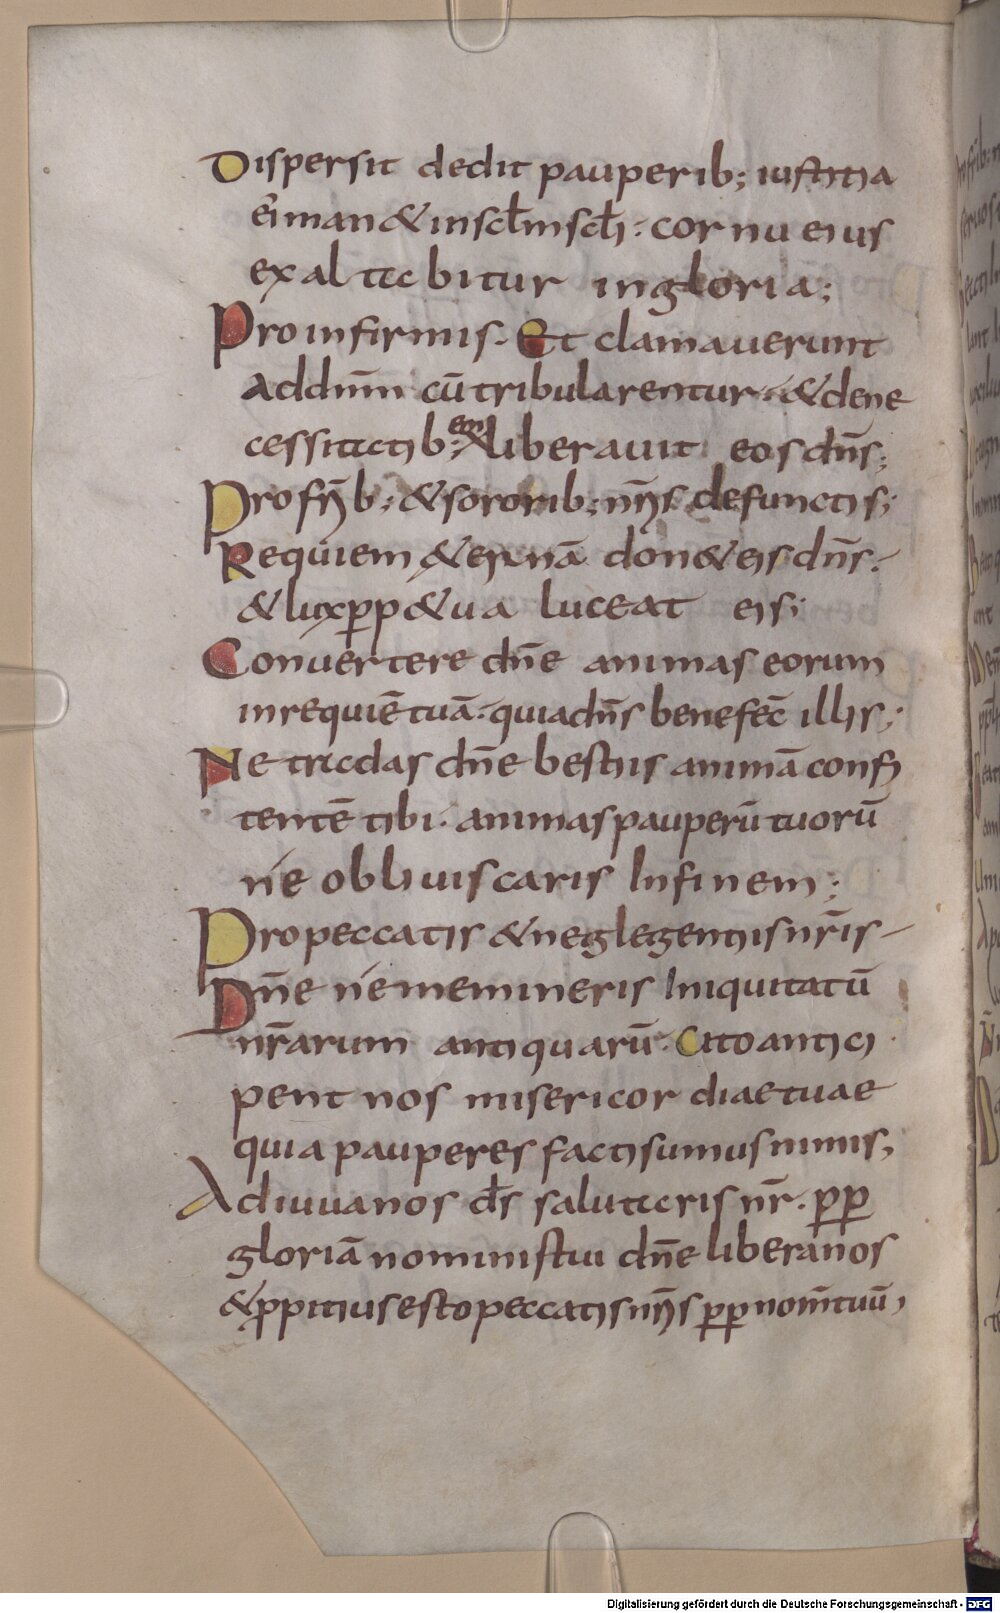 Dispersit dedit pauperib; iustitia
ei man& in sclm scli: cornu eius
exaltabitur in gloria;
Pro infirmis. Et clamaverunt
ad dnm cū tribularentur. & de ne
cessitatib; eorū liberauit eos dns;
Pro frib; & sororib; nris defunctis;
Requiem &ernā don& eis dns.
& lux perp&ua luceat eis;
Convertere dne animas eorum
in requiē tuā. quia dns benefec̄ illis;
Ne tradas dne bestiis animā confi
tentē tibi. animas pauperū tuorū
ne obliuiscaris In finem;
Pro peccatis & neglegentiis nris
Dne ne memineris Iniquitatū
nrarum antiquarū. Cito antici
pent nos misericordiae tuae
quia pauperes facti sumus nimis,
Adiuua nos ds salutaris nr. pp
gloriā nominis tui dne libera nos
& ppitius esto peccatis nris pp nom tuū,
Digitalisierung gefördert durch die Deutsche Forschungsgemeinschaft - DFG